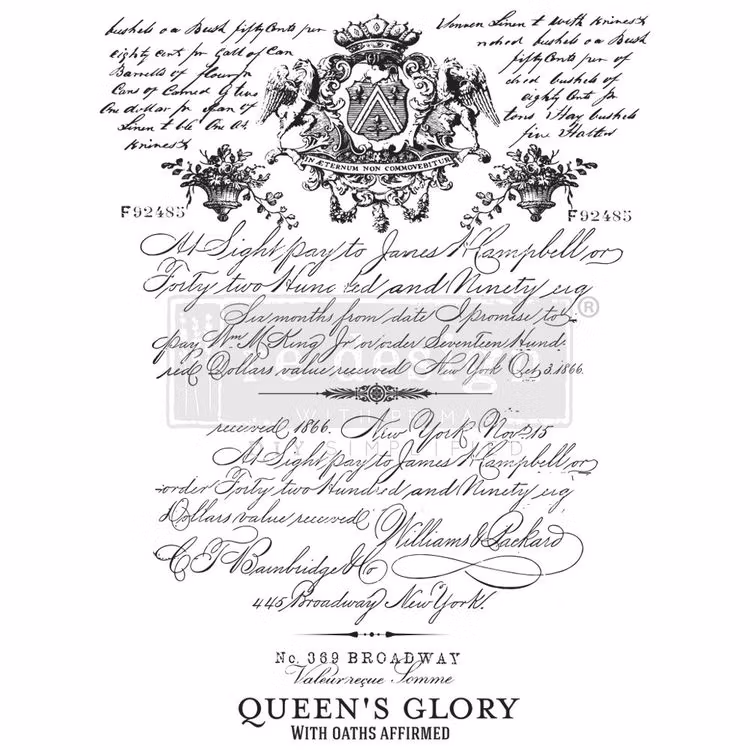 bushels o a Bush fifty Cents per
eighty cent pr Gall of Can
Barrells of flour pr
Cans of Corned
One dollar pr span of
Linen t ble One
Knives t
Linen t with Knives t
bushels o a Bush
fifty Cents per of
bushels of
eighty Cents pr
tons Hay bushels
five Halters
IN ÆTERNUM NON COMMOVEBITUR
F92485
F92485
At Sight pay to James W Campbell or
Forty two Hund ed and Ninety eig
Six months from date I promise to
pay Wm M King Jr or order Seventeen Hund-
red Dollars value received New York Oct 3. 1866.
re·design
WITH PRIMA
DIY SIMPLIFIED
®
received 1866. New York Nov. 15
At Sight pay to James W Campbell or
order Forty two Hundred and Ninety eig
Dollars value received
Williams & Packard
C T Bainbridge & Co
445 Broadway New York.
No. 369 BROADWAY
Valeur reçue Somme
QUEEN'S GLORY
WITH OATHS AFFIRMED